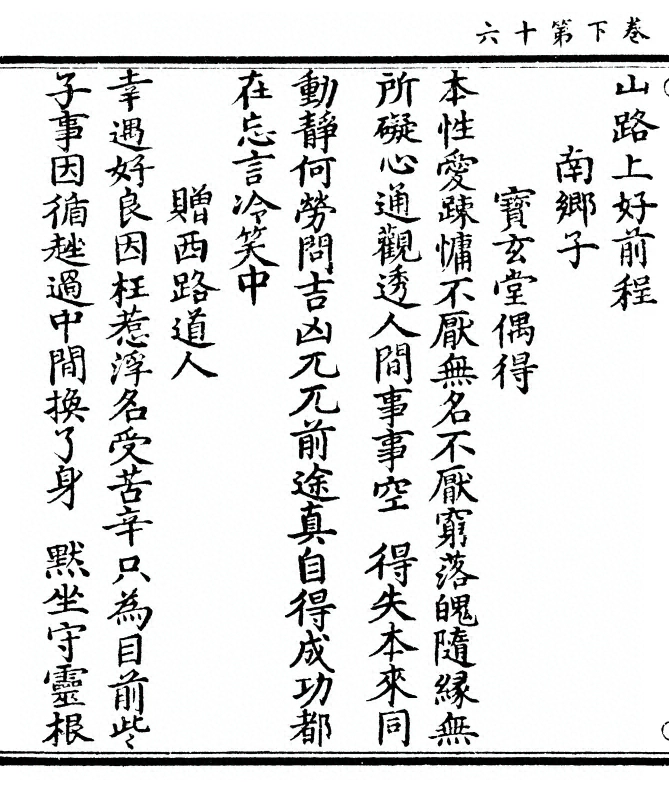 巻下第十六
山路上好前程
南鄉子
寶玄堂偶得
本性愛踈慵不厭無名不厭窮落魄隨緣無
所礙心通觀透人間事事空　得失本來同
動靜何勞問吉凶兀兀前途真自得成功都
在忘言冷笑中
贈西路道人
幸遇好良因枉惹浮名受苦辛只為目前些
子事因循過中間換了身　默坐守靈根